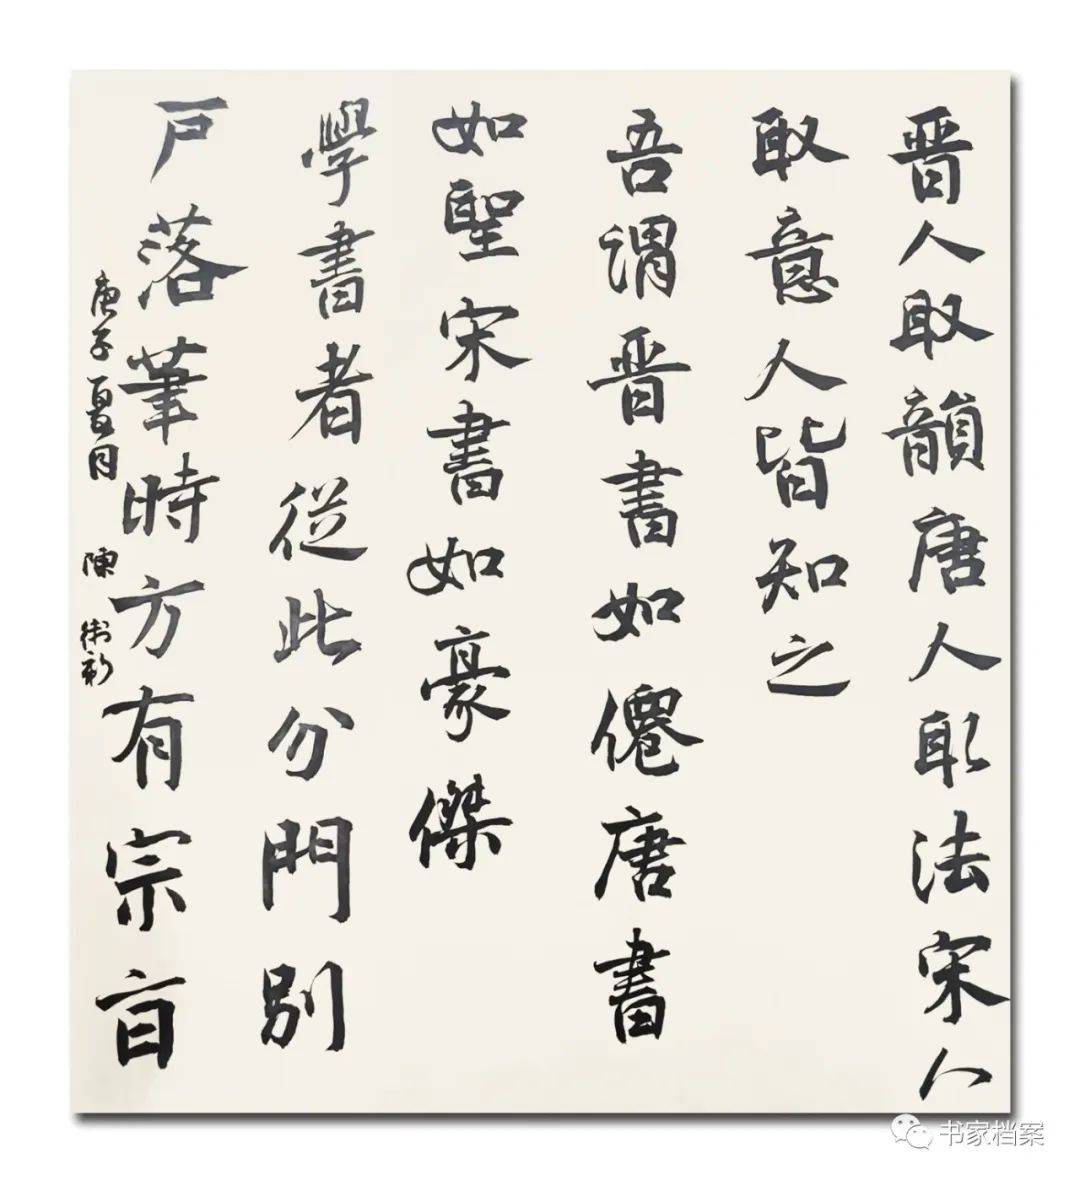 晋人取韻唐人取法宋人
取意人皆知之
吾謂晋書如僊唐書
如聖宋書如豪傑
學書者從此分門別
戶落筆時方有宗旨
庚子夏月 陳衛新
书家档案